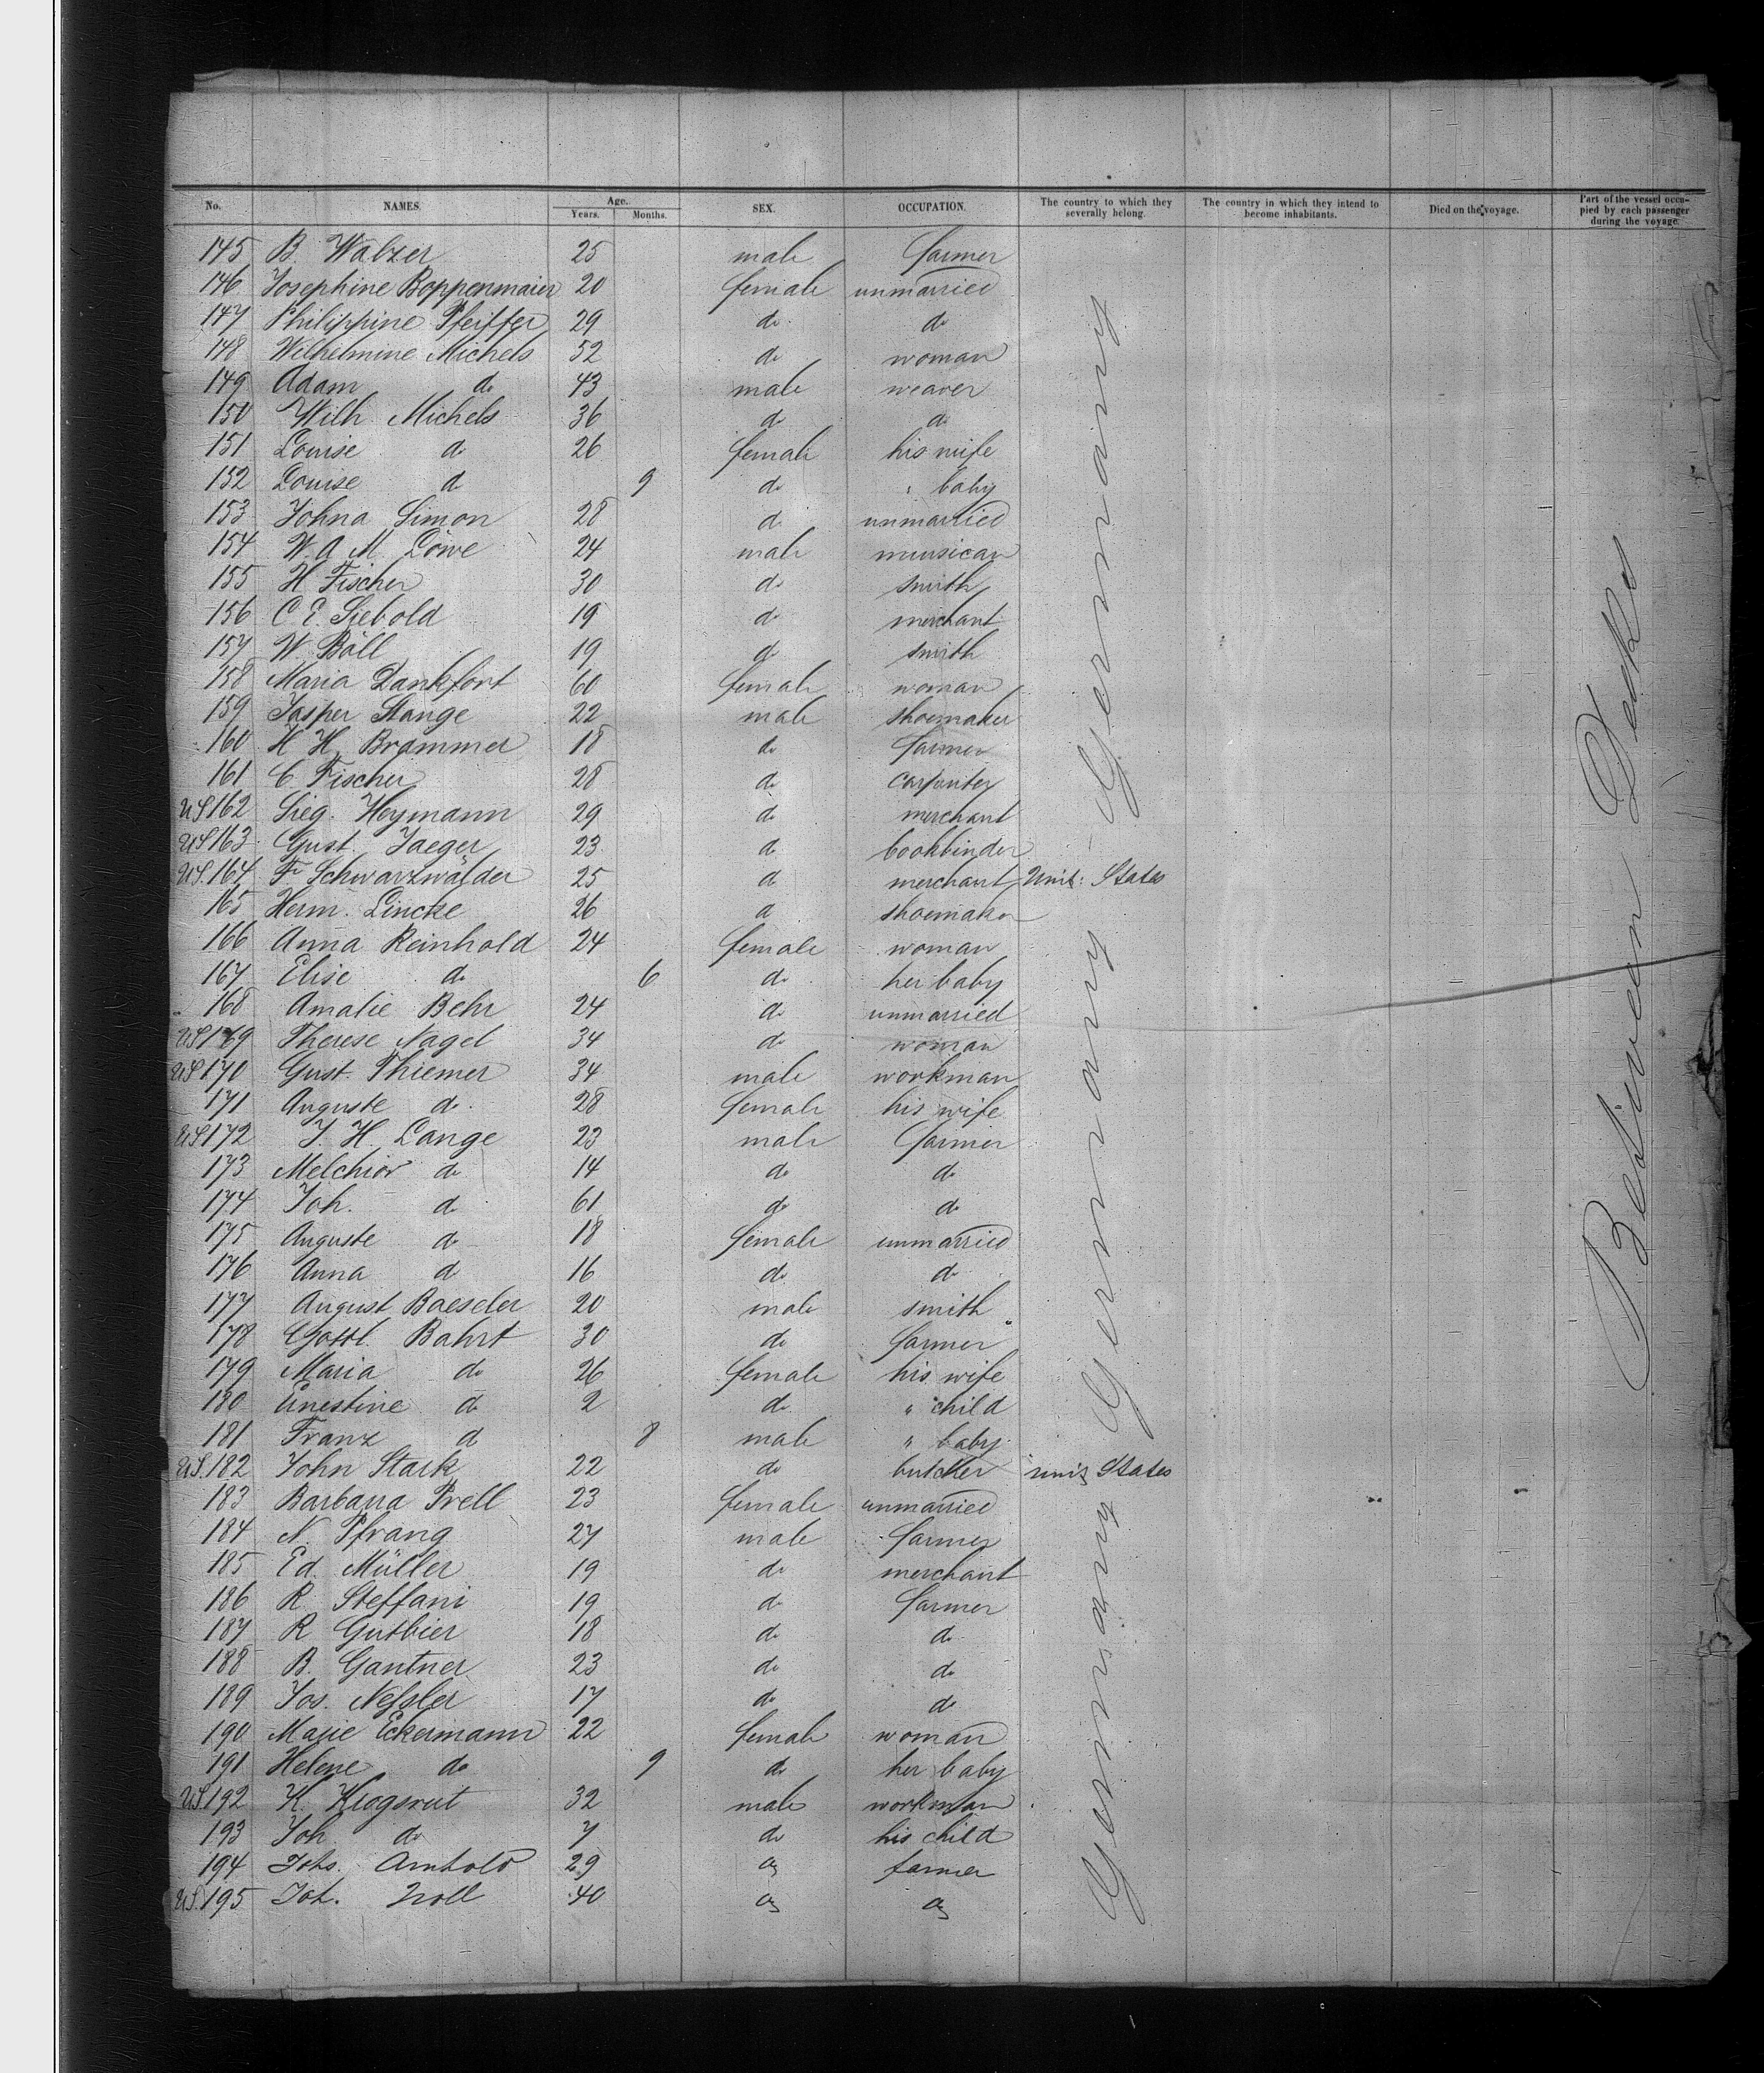 No. NAMES. Age. Years. Months. SEX. OCCUPATION. The country to which they severally belong. The country in which they intend to become inhabitants. Died on the voyage. Part of the vessel occupied by each passenger during the voyage.
145 B. Walzer 25 male farmer
146 Josephine Boppenmaier 20 female unmarried
147 Philippine Pfeiffer 29 do do
148 Wilhelmine Michels 52 do woman
149 Adam do 43 male weaver
150 Wilh. Michels 36 do do
151 Louise do 26 female his wife
152 Louise do 9 do " baby
153 Johna Simon 28 do unmarried
154 W. A. M. Löwe 24 male munsican
155 H Fischer 30 do smith
156 C. E. Siebold 19 do merchant
157 W. Böll 19 do smith
158 Maria Dankfort 60 female woman
159 Jasper Stange 22 male shoemaker
160 H. H. Brammer 18 do farmer
161 C. Fischer 28 do carpenter
US 162 Sieg. Heymann 29 do merchant
US 163 Gust. Jaeger 23 do bookbinder
US. 164 Fr Schwarzwälder 25 do merchant Unit: States
165 Herm. Lincke 26 do shoemaker
166 Anna Reinhold 24 female woman
167 Elise do 6 do her baby
168 Amalie Behr 24 do unmarried
US 169 Therese Nagel 34 do woman
US 170 Gust. Thiemer 34 male workman
171 Auguste do 28 female his wife
US 172 J. H. Lange 23 male farmer
173 Melchior do 14 do do
174 Joh. do 61 do do
175 Auguste do 18 female unmarried
176 Anna do 16 do do
177 August Baeseler 20 male smith
178 Gottl. Bahrt 30 do farmer
179 Maria do 26 female his wife
180 Ernestine do 2 do " child
181 Franz do 8 male " baby
US. 182 John Stark 22 do butcher unit States
183 Barbara Prell 23 female unmarried
184 N. Pfrang 27 male farmer
185 Ed. Müller 19 do merchant
186 R. Steffani 19 do farmer
187 R Gutbier 18 do do
188 B. Gantner 23 do do
189 Jos. Neßler 17 do do
190 Marie Eckermann 22 female woman
191 Helene do 9 do her baby
US 192 K. 32 male workman
193 Joh do 7 do his child
194 Johs. Arnhold 29 do farmer
US. 195 Joh. Noll 40 do do
Germany
Germany
Germany
Between Decks